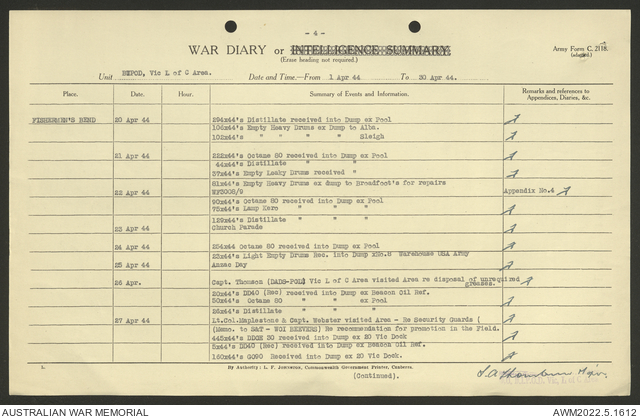 - 4 -
WAR DIARY or INTELLIGENCE SUMMARY.
(Erase heading not required.)
Army Form C. 2118.
(adapted.)
Unit BIPOD, Vic L of C Area. Date and Time.—From 1 Apr 44 To 30 Apr 44.
Place. Date. Hour. Summary of Events and Information. Remarks and references to Appendices, Diaries, &c.
FISHERMEN'S BEND 20 Apr 44 294x44's Distillate received into Dump ex Pool
106x44's Empty Heavy Drums ex Dump to Alba.
102x44's " " " " " Sleigh
21 Apr 44 222x44's Octane 80 received into Dump ex Pool
44x44's Distillate " " "
37x44's Empty Leaky Drums received "
81x44's Empty Heavy Drums ex dump to Broadfoot's for repairs
22 Apr 44 EF3008/9 Appendix No.4
90x44's Octane 80 received into Dump ex Pool
75x44's Lamp Kero " " "
129x44's Distillate " " "
23 Apr 44 Church Parade
24 Apr 44 204x44 Octane 80 received into Dump ex Pool
23x44's Light Empty Drums Rec. into Dump No.8 Warehouse USA Army
25 Apr 44 Anzac Day
26 Apr. Capt. Thomson (DADS-POL) Vic L of C Area visited Area re disposal of unrequired greases.
20x44's DD40 (Rec) received into Dump ex Beacon Oil Ref.
50x44's Octane 80 " " ex Pool
26x44's Distillate " " "
27 Apr 44 Lt.Col.Maplestone & Capt. Webster visited Area - Re Security Guards (
(Memo. to S&T - WOI BEEVERS) Re recommendation for promotion in the Field.
445x44's DDOE 30 received into Dump ex 20 Vic Dock
5x44's DD40 (Rec) received into Dump ex Beacon Oil Ref.
160x44's GO90 Received into Dump ex 20 Vic Dock.
By Authority: L. F. Johnston, Commonwealth Government Printer, Canberra.
(Continued).
AUSTRALIAN WAR MEMORIAL
AWM2022.5.1612